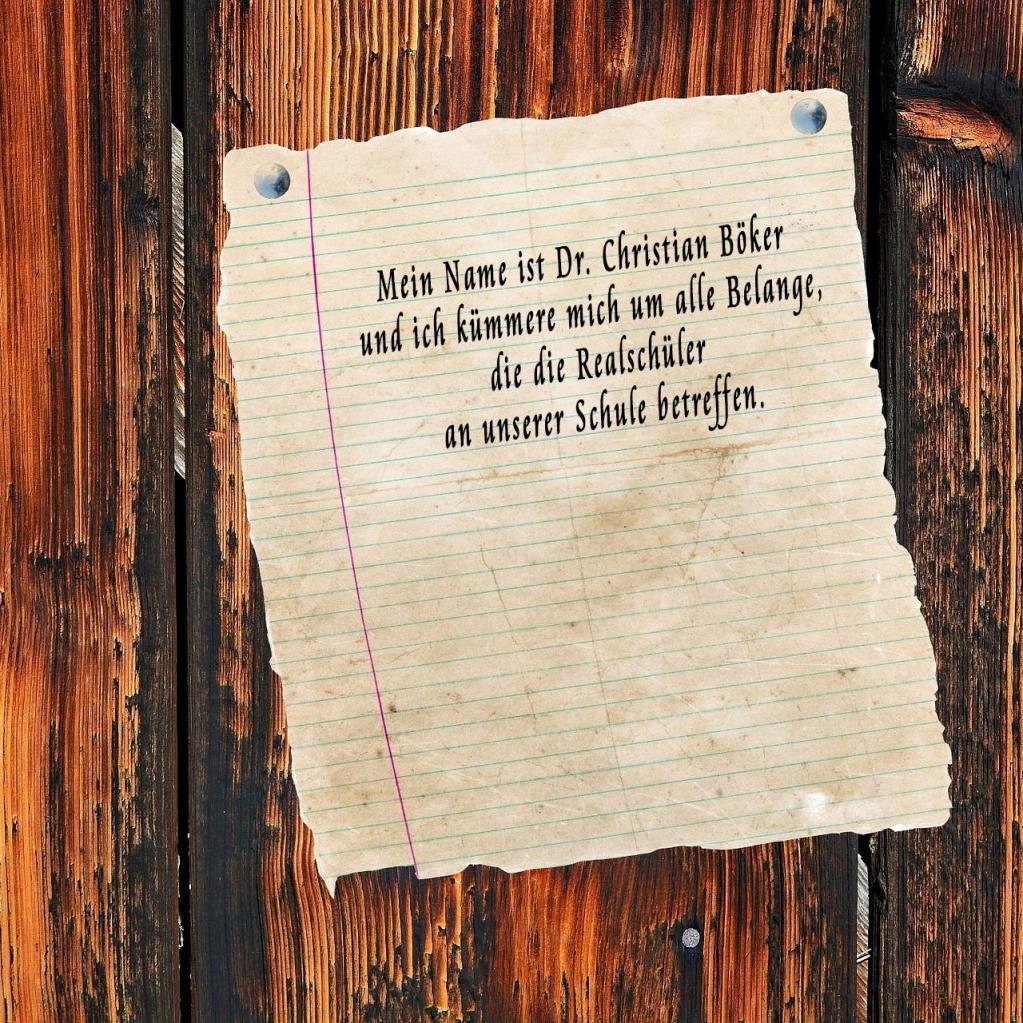 Mein Name ist Dr. Christian Böker
und ich kümmere mich um alle Belange,
die die Realschüler
an unserer Schule betreffen.